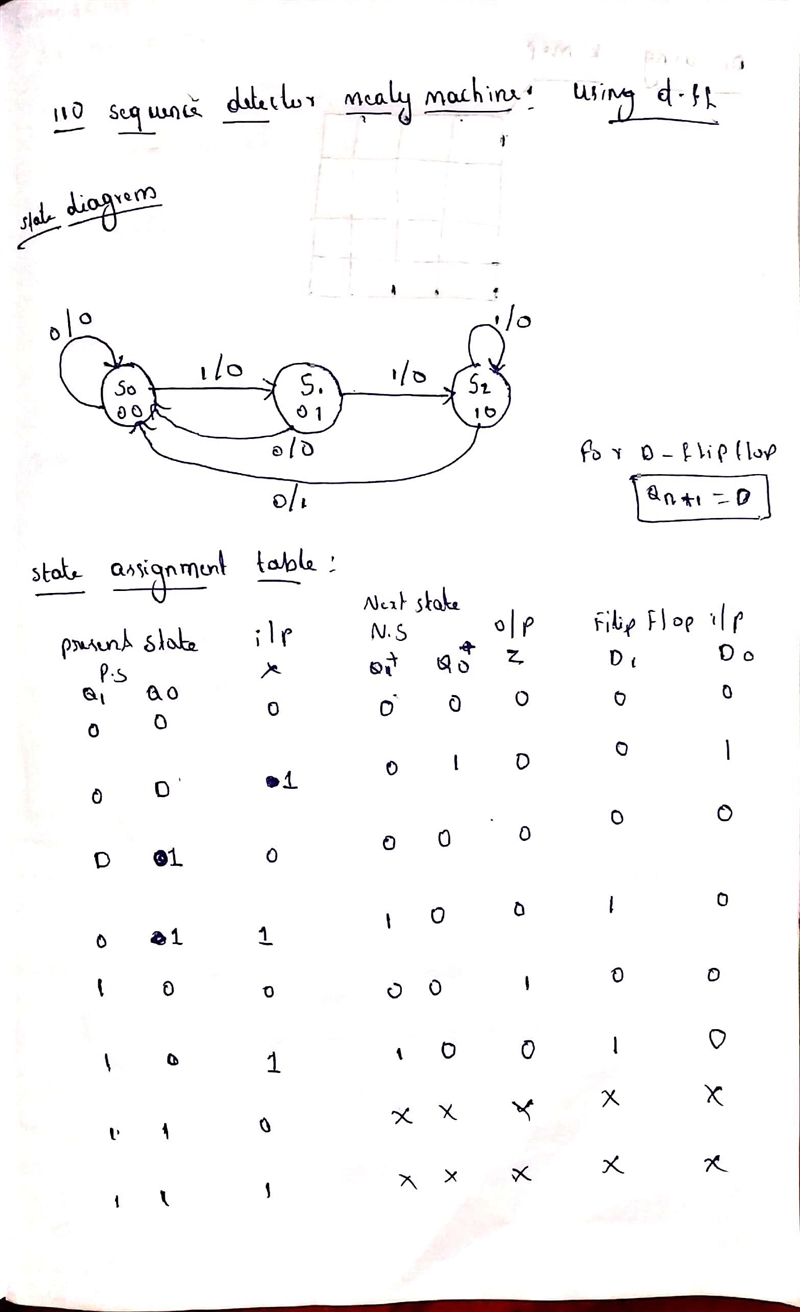 110 sequence detector mealy machine: using d-ff
state diagram
0/0
1/0
1/0
1/0
S0
00
S1
01
S2
10
0/0
0/1
for D-flipflop
Qn+1 = D
state assignment table:
present state i/p Next state o/p Filip Flop i/p
P.S x N.S z D1 D0
Q1 Q0 Q1+ Q0+
0 0 0 0 0 0 0 0
0 0 1 0 1 0 0 1
0 1 0 0 0 0 0 0
0 1 1 1 0 0 1 0
1 0 0 0 0 1 0 0
1 0 1 1 0 0 1 0
1 1 0 x x x x x
1 1 1 x x x x x